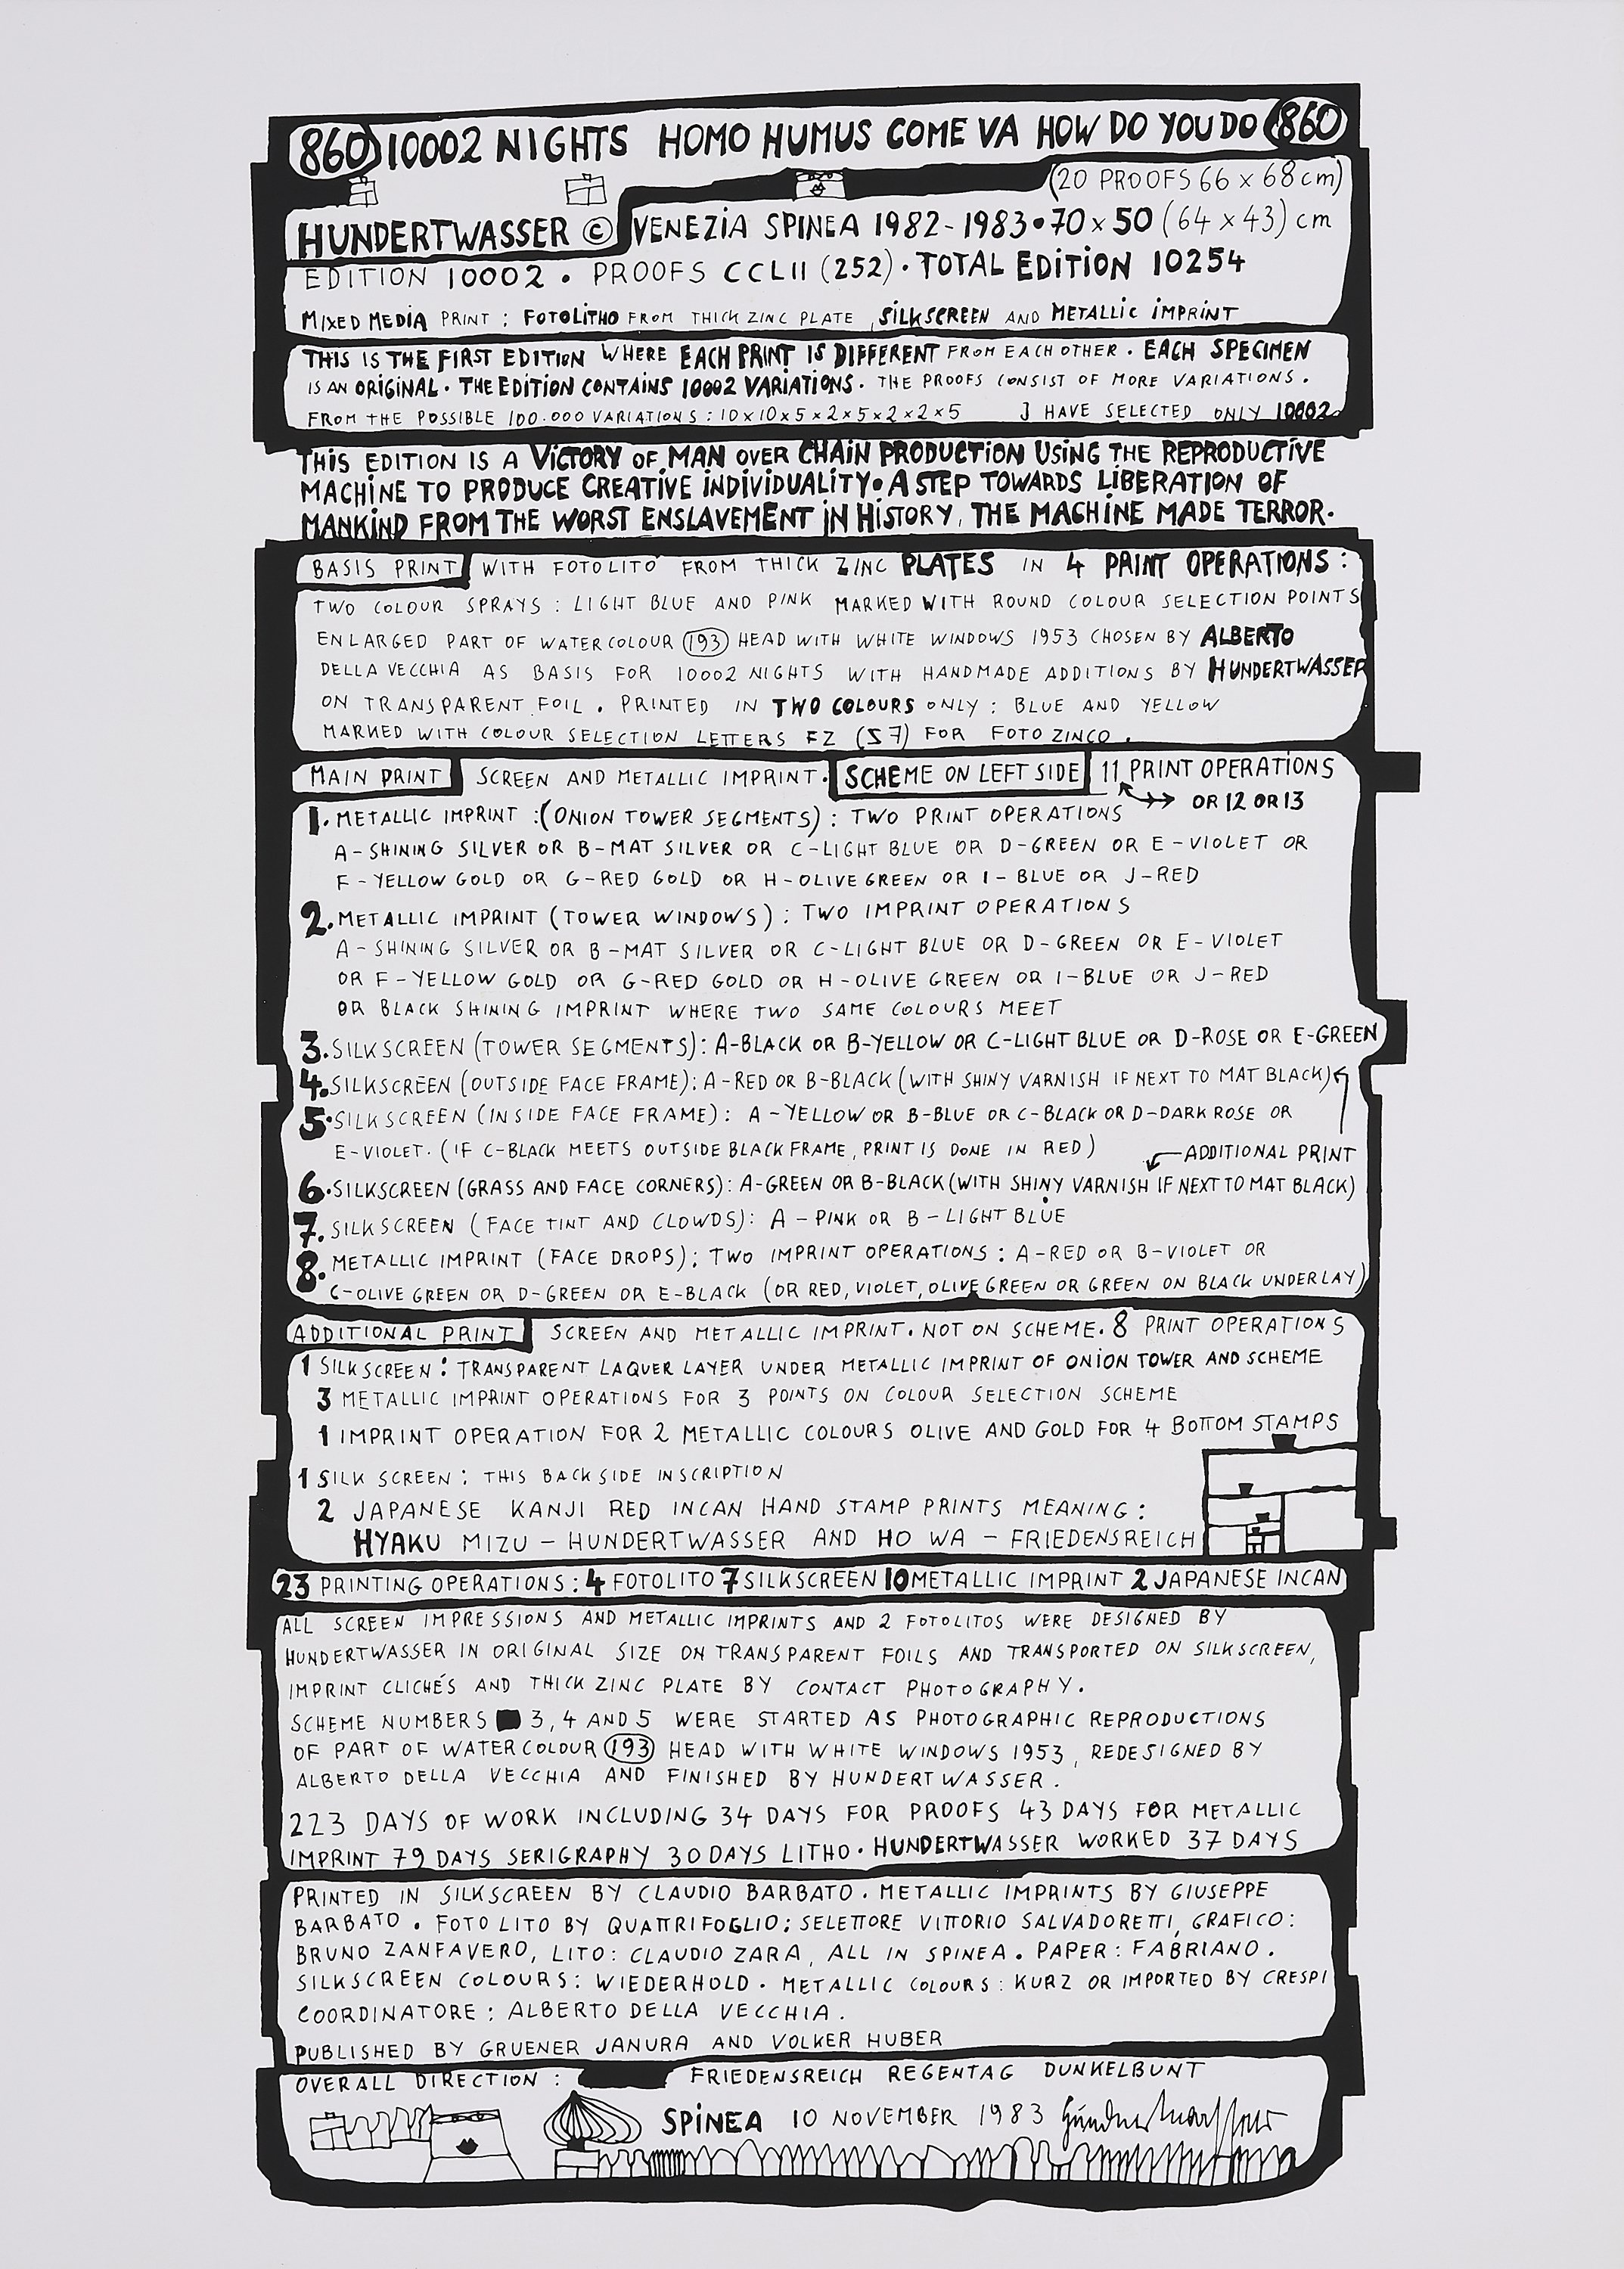 860 10002 NIGHTS HOMO HUMUS COME VA HOW DO YOU DO 860
(20 PROOFS 66 x 68 cm)
HUNDERTWASSER © VENEZIA SPINEA 1982-1983 • 70 x 50 (64 x 43) cm
EDITION 10002 • PROOFS CCLII (252) • TOTAL EDITION 10254
MIXED MEDIA PRINT : FOTOLITHO FROM THICK ZINC PLATE, SILKSCREEN AND METALLIC IMPRINT
THIS IS THE FIRST EDITION WHERE EACH PRINT IS DIFFERENT FROM EACH OTHER. EACH SPECIMEN
IS AN ORIGINAL. THE EDITION CONTAINS 10002 VARIATIONS. THE PROOFS CONSIST OF MORE VARIATIONS.
FROM THE POSSIBLE 100.000 VARIATIONS : 10x10x5x2x5x2x2x5 J HAVE SELECTED ONLY 10002
THIS EDITION IS A VICTORY OF MAN OVER CHAIN PRODUCTION USING THE REPRODUCTIVE
MACHINE TO PRODUCE CREATIVE INDIVIDUALITY • A STEP TOWARDS LIBERATION OF
MANKIND FROM THE WORST ENSLAVEMENT IN HISTORY, THE MACHINE MADE TERROR.
BASIS PRINT WITH FOTOLITO FROM THICK ZINC PLATES IN 4 PRINT OPERATIONS :
TWO COLOUR SPRAYS : LIGHT BLUE AND PINK MARKED WITH ROUND COLOUR SELECTION POINTS
ENLARGED PART OF WATERCOLOUR 193 HEAD WITH WHITE WINDOWS 1953 CHOSEN BY ALBERTO
DELLA VECCHIA AS BASIS FOR 10002 NIGHTS WITH HANDMADE ADDITIONS BY HUNDERTWASSER
ON TRANSPARENT FOIL . PRINTED IN TWO COLOURS ONLY : BLUE AND YELLOW
MARKED WITH COLOUR SELECTION LETTERS FZ (S7) FOR FOTO ZINCO .
MAIN PRINT SCREEN AND METALLIC IMPRINT. SCHEME ON LEFT SIDE 11 PRINT OPERATIONS
OR 12 OR 13
1. METALLIC IMPRINT :(ONION TOWER SEGMENTS) : TWO PRINT OPERATIONS
A-SHINING SILVER OR B-MAT SILVER OR C-LIGHT BLUE OR D-GREEN OR E-VIOLET OR
F-YELLOW GOLD OR G-RED GOLD OR H-OLIVE GREEN OR I-BLUE OR J-RED
2. METALLIC IMPRINT (TOWER WINDOWS) : TWO IMPRINT OPERATIONS
A-SHINING SILVER OR B-MAT SILVER OR C-LIGHT BLUE OR D-GREEN OR E-VIOLET
OR F-YELLOW GOLD OR G-RED GOLD OR H-OLIVE GREEN OR I-BLUE OR J-RED
OR BLACK SHINING IMPRINT WHERE TWO SAME COLOURS MEET
3. SILKSCREEN (TOWER SEGMENTS): A-BLACK OR B-YELLOW OR C-LIGHT BLUE OR D-ROSE OR E-GREEN
4. SILKSCREEN (OUTSIDE FACE FRAME): A-RED OR B-BLACK (WITH SHINY VARNISH IF NEXT TO MAT BLACK)
5. SILKSCREEN (INSIDE FACE FRAME): A-YELLOW OR B-BLUE OR C-BLACK OR D-DARK ROSE OR
E-VIOLET. (IF C-BLACK MEETS OUTSIDE BLACK FRAME, PRINT IS DONE IN RED)
ADDITIONAL PRINT
6. SILKSCREEN (GRASS AND FACE CORNERS): A-GREEN OR B-BLACK (WITH SHINY VARNISH IF NEXT TO MAT BLACK)
7. SILKSCREEN (FACE TINT AND CLOWDS): A-PINK OR B-LIGHT BLUE
8. METALLIC IMPRINT (FACE DROPS); TWO IMPRINT OPERATIONS : A-RED OR B-VIOLET OR
C-OLIVE GREEN OR D-GREEN OR E-BLACK (OR RED, VIOLET, OLIVE GREEN OR GREEN ON BLACK UNDERLAY)
ADDITIONAL PRINT SCREEN AND METALLIC IMPRINT. NOT ON SCHEME. 8 PRINT OPERATIONS
1 SILKSCREEN : TRANSPARENT LAQUER LAYER UNDER METALLIC IMPRINT OF ONION TOWER AND SCHEME
3 METALLIC IMPRINT OPERATIONS FOR 3 POINTS ON COLOUR SELECTION SCHEME
1 IMPRINT OPERATION FOR 2 METALLIC COLOURS OLIVE AND GOLD FOR 4 BOTTOM STAMPS
1 SILK SCREEN : THIS BACKSIDE INSCRIPTION
2 JAPANESE KANJI RED INCAN HAND STAMP PRINTS MEANING :
HYAKU MIZU - HUNDERTWASSER AND HO WA - FRIEDENSREICH
23 PRINTING OPERATIONS : 4 FOTOLITO 7 SILKSCREEN 10 METALLIC IMPRINT 2 JAPANESE INCAN
ALL SCREEN IMPRESSIONS AND METALLIC IMPRINTS AND 2 FOTOLITOS WERE DESIGNED BY
HUNDERTWASSER IN ORIGINAL SIZE ON TRANSPARENT FOILS AND TRANSPORTED ON SILKSCREEN,
IMPRINT CLICHÉS AND THICK ZINC PLATE BY CONTACT PHOTOGRAPHY.
SCHEME NUMBERS 3, 4 AND 5 WERE STARTED AS PHOTOGRAPHIC REPRODUCTIONS
OF PART OF WATERCOLOUR 193 HEAD WITH WHITE WINDOWS 1953, REDESIGNED BY
ALBERTO DELLA VECCHIA AND FINISHED BY HUNDERTWASSER.
223 DAYS OF WORK INCLUDING 34 DAYS FOR PROOFS 43 DAYS FOR METALLIC
IMPRINT 79 DAYS SERIGRAPHY 30 DAYS LITHO. HUNDERTWASSER WORKED 37 DAYS
PRINTED IN SILKSCREEN BY CLAUDIO BARBATO. METALLIC IMPRINTS BY GIUSEPPE
BARBATO. FOTOLITO BY QUATTRIFOGLIO; SELETTORE VITTORIO SALVADORETTI, GRAFICO:
BRUNO ZANFAVERO, LITO: CLAUDIO ZARA, ALL IN SPINEA. PAPER: FABRIANO.
SILKSCREEN COLOURS: WIEDERHOLD. METALLIC COLOURS: KURZ OR IMPORTED BY CRESPI
COORDINATORE : ALBERTO DELLA VECCHIA.
PUBLISHED BY GRUENER JANURA AND VOLKER HUBER
OVERALL DIRECTION : FRIEDENSREICH REGENTAG DUNKELBUNT
SPINEA 10 NOVEMBER 1983 Hundertwasser